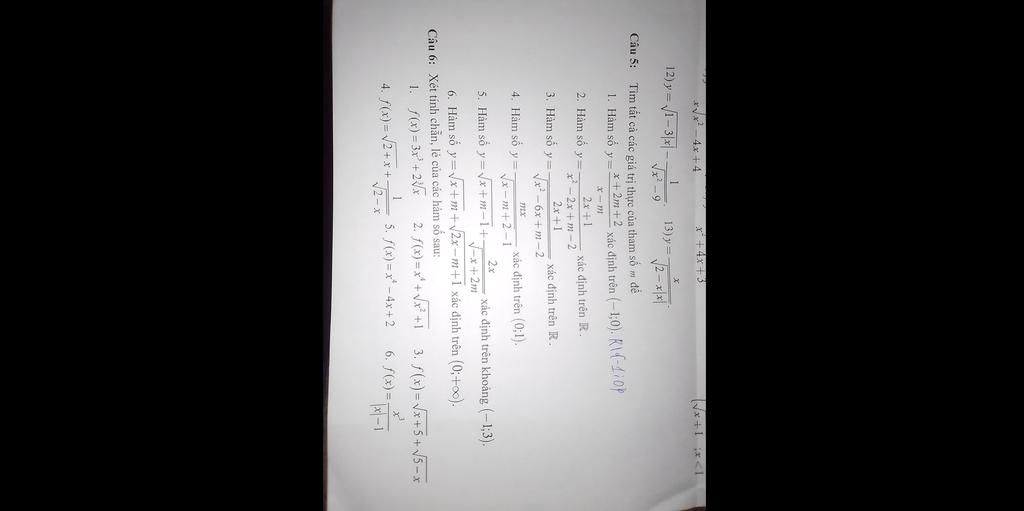 x√(x² − 4x + 4) x² + 4x + 3 {√(x + 1) ; x < 1
12) y = √(1 − 3|x|) − 1/√(x² − 9). 13) y = x/√(2 − x|x|).
Câu 5: Tìm tất cả các giá trị thực của tham số m để
1. Hàm số y = (x − m)/(x + 2m + 2) xác định trên (−1;0). R\{-1;0}
2. Hàm số y = (2x + 1)/(x² − 2x + m − 2) xác định trên ℝ.
3. Hàm số y = (2x + 1)/√(x² − 6x + m − 2) xác định trên ℝ.
4. Hàm số y = mx/(√(x − m + 2) − 1) xác định trên (0;1).
5. Hàm số y = √(x + m − 1) + 2x/√(−x + 2m) xác định trên khoảng (−1;3).
6. Hàm số y = √(x + m) + √(2x − m + 1) xác định trên (0;+∞).
Câu 6: Xét tính chẵn, lẻ của các hàm số sau:
1. f(x) = 3x³ + 2∛x 2. f(x) = x⁴ + √(x² + 1) 3. f(x) = √(x + 5) + √(5 − x)
4. f(x) = √(2 + x) + 1/√(2 − x) 5. f(x) = x⁴ − 4x + 2 6. f(x) = x³/(|x| − 1)